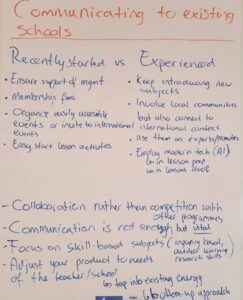 Communicating to existing
Schools
Recently started vs Experienced
• Ensure support of mgmt
• Membership fees
• Organise easily accessible
events or invite to international
events
• Easy start lesson activities
• Keep introducing new
subjects
• Involve local communities
but also connect to
international context
• Use them as experts/mentors
• Employ modern tech (AI)
↳ in lesson prep
↳ in lesson itself
- Collaboration rather than competition with
other programmes
- Communication is not enough but vital
- Focus on skill-based subjects (inquiry based,
outdoor learning
research skills)
- Adjust your product to needs
of the teacher/school
↳ tap into existing energy
↳ bottom-up approach